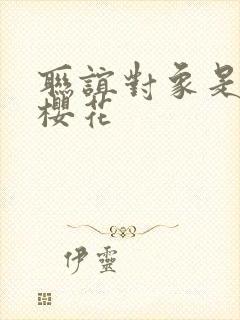 聯誼對象是
櫻花
伊靈